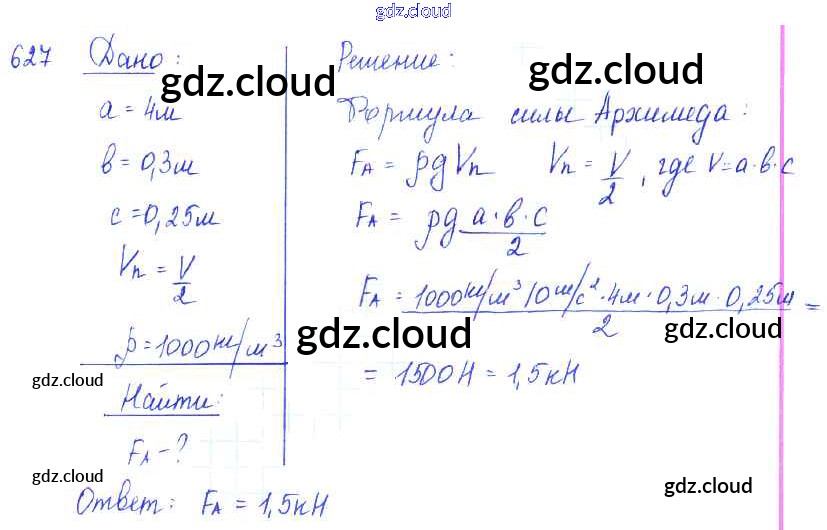 gdz.cloud
627 Дано:
gdz.cloud
a = 4м
в = 0,3м
c = 0,25м
Vп = V/2
ρ = 1000 кг/м³
gdz.cloud
Найти:
FA - ?
gdz.cloud
Решение:
gdz.cloud
Формула силы Архимеда:
FA = ρgVп Vп = V/2, где V = a·в·c
FA = ρg a·в·c/2
FA = 1000 кг/м³ 10 м/с²·4м·0,3м·0,25м/2 =
gdz.cloud gdz.cloud
= 1500 Н = 1,5 кН
gdz.cloud
Ответ: FA = 1,5 кН